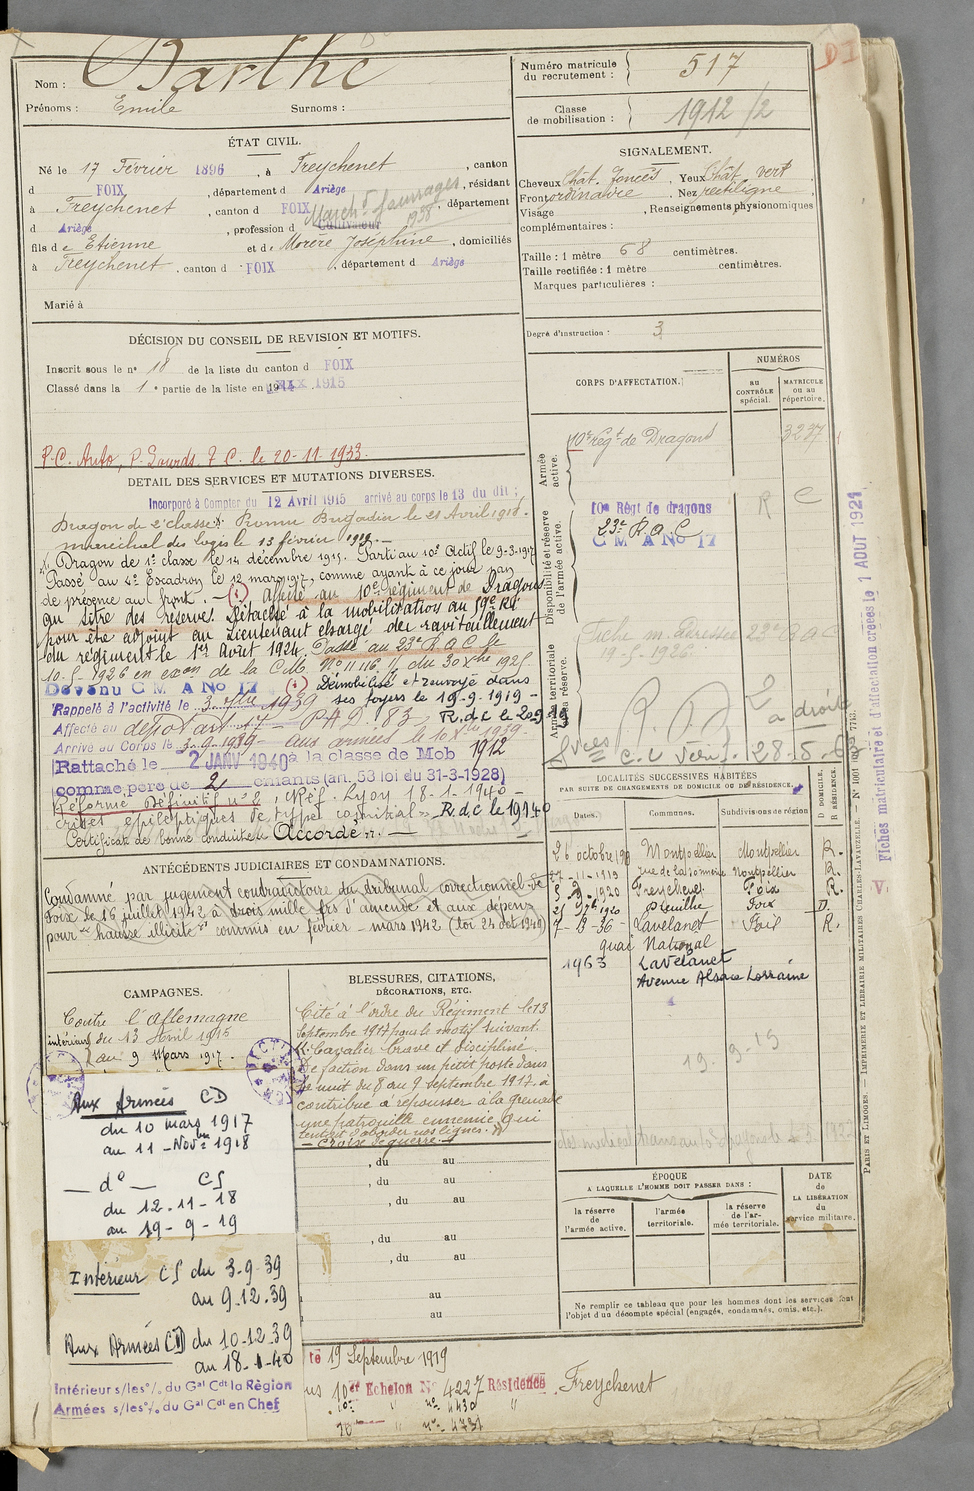 Nom : Barthe
Prénoms : Emile Surnoms :
Numéro matricule du recrutement : 517
Classe de mobilisation : 1912 /2
ÉTAT CIVIL.
Né le 17 Février 1896, à Freychenet, canton
d FOIX, département d Ariège, résidant
à Freychenet, canton d FOIX, département
d Ariège, profession d Cultivateur
March d fourrages 1938
fils de Etienne et de Morère Joséphine, domiciliés
à Freychenet, canton d FOIX, département d Ariège
Marié à
SIGNALEMENT.
Cheveux Chât. foncés, Yeux Chât. vert
Front ordinaire, Nez rectiligne
Visage , Renseignements physionomiques
complémentaires :
Taille : 1 mètre 68 centimètres.
Taille rectifiée : 1 mètre centimètres.
Marques particulières :
Degré d'instruction : 3
DÉCISION DU CONSEIL DE REVISION ET MOTIFS.
Inscrit sous le nº 18 de la liste du canton d FOIX
Classé dans la 1e partie de la liste en 1915
P.C. Auto, P. Lourds. T C. le 20-11-1933.
DÉTAIL DES SERVICES ET MUTATIONS DIVERSES.
Incorporé à Compter du 12 Avril 1915 arrivé au corps le 13 du dit ;
Dragon de 2e classe. Promu Brigadier le 21 Avril 1918.
Maréchal des Logis le 13 février 1919.
Dragon de 1e classe le 14 décembre 1915. Parti au 10e Actif le 9-3-1917
Passé au 4e Escadron le 12 mars 1917, comme ayant à ce jour
de présence au front. Affecté au 10e régiment de Dragons
au titre des réserves. Détaché à la mobilisation au
pour être adjoint au Lieutenant chargé du ravitaillement
du régiment le 1er Août 1924. Passé au 23e R.A.C. le
10-5-1926 en exon de la C.M. Nº 11116 du 30 Xbre 1925
Devenu C M A No 17
Démobilisé et renvoyé dans
ses foyers le 19-9-1919
Rappelé à l'activité le 3 1939
Affecté au dépôt art. 17 R.d.c le 20-9-19
Arrivé au Corps le 3-9-1939 aux armées le 10 Xbre 1939
Rattaché le 2 JANV 1940 à la classe de Mob 1912
comme père de 2 enfants (art. 58 loi du 31-3-1928)
Réformé définitif nº 2, Réf. Lyon 18-1-1940
crises épileptiques de type comitial R.d.c le
Certificat de bonne conduite Accordé.
CORPS D'AFFECTATION.
NUMÉROS
AU CONTRÔLE spécial.
MATRICULE OU AU répertoire.
Armée active.
10e Régt de Dragons 3237
Disponibilité et réserve de l'armée active.
10e Régt de dragons R C
23e R.A.C
C M A No 17
Armée territoriale et sa réserve.
Fiche m. adressée 23e RAC
19-5-1926
28-5-63
LOCALITÉS SUCCESSIVES HABITÉES
PAR SUITE DE CHANGEMENTS DE DOMICILE OU DE RÉSIDENCE.
Dates. Communes. Subdivisions de région D DOMICILE, R RÉSIDENCE.
26 octobre Montpellier Montpellier R.
27-11-1919 Montpellier R.
1920 Freychenet Foix R.
1920 Foix D.
7-B-36 Lavelanet Foix R.
quai National
1963 Lavelanet
Avenue Alsace Lorraine
19-9-19
ANTÉCÉDENTS JUDICIAIRES ET CONDAMNATIONS.
Condamné par jugement contradictoire du tribunal correctionnel de
Foix du 16 juillet 1942 à trois mille frs d'amende et aux dépens
pour "hausse illicite" commis en février - mars 1942 (loi 21 oct 1940)
CAMPAGNES.
Contre l'Allemagne
intérieur du 13 Avril 1915
au 9 Mars 1917.
Aux Armées CD
du 10 mars 1917
au 11 - Novbre 1918
— dº — CS
du 12-11-18
au 19-9-19
Intérieur CS du 3-9-39
au 9.12.39
Aux Armées CD du 10-12-39
au 18-1-40
Intérieur s/les % du Gal Cdt la Région
Armées s/les % du Gal Cdt en Chef
BLESSURES, CITATIONS,
DÉCORATIONS, ETC.
Cité à l'ordre du Régiment le 13
Septembre 1917 pour le motif suivant.
Cavalier brave et discipliné.
De faction dans un petit poste dans
la nuit du 8 au 9 septembre 1917. a
contribué à repousser à la grenade
une patrouille ennemie qui
tentait d'aborder nos lignes.
— Croix de guerre —
, du au
, du au
, du au
, du au
, du au
au
au
ÉPOQUE
A LAQUELLE L'HOMME DOIT PASSER DANS :
la réserve de l'armée active.
l'armée territoriale.
la réserve de l'armée territoriale.
DATE de LA LIBÉRATION du service militaire.
Ne remplir ce tableau que pour les hommes dont les services font
l'objet d'un décompte spécial (engagés, condamnés, omis, etc.).
le 19 Septembre 1919
1er Echelon Nº 4227 Résidence Freychenet
nº 4430
nº 4731
Fiches matriculaire et d'affectation créées le 1 AOUT 1921
PARIS ET LIMOGES. — IMPRIMERIE ET LIBRAIRIE MILITAIRES CHARLES-LAVAUZELLE.